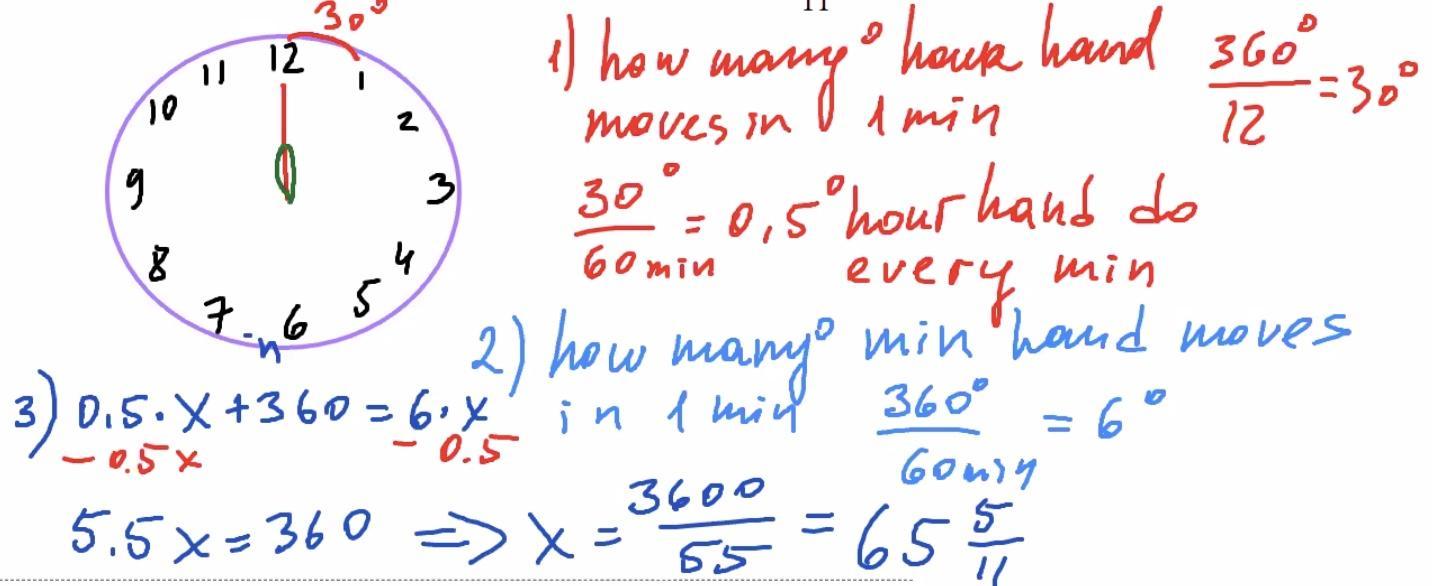 30°
12
1
2
3
4
5
6
7
8
9
10
11
11
1) how many° hour hand
moves in 1 min
360° / 12 = 30°
30° / 60 min = 0,5° hour hand do
every min
2) how many° min hand moves
in 1 min 360° / 60 min = 6°
3) 0.5·x + 360 = 6·x
- 0.5x - 0.5
5.5x = 360 => x = 3600 / 55 = 65 5/11